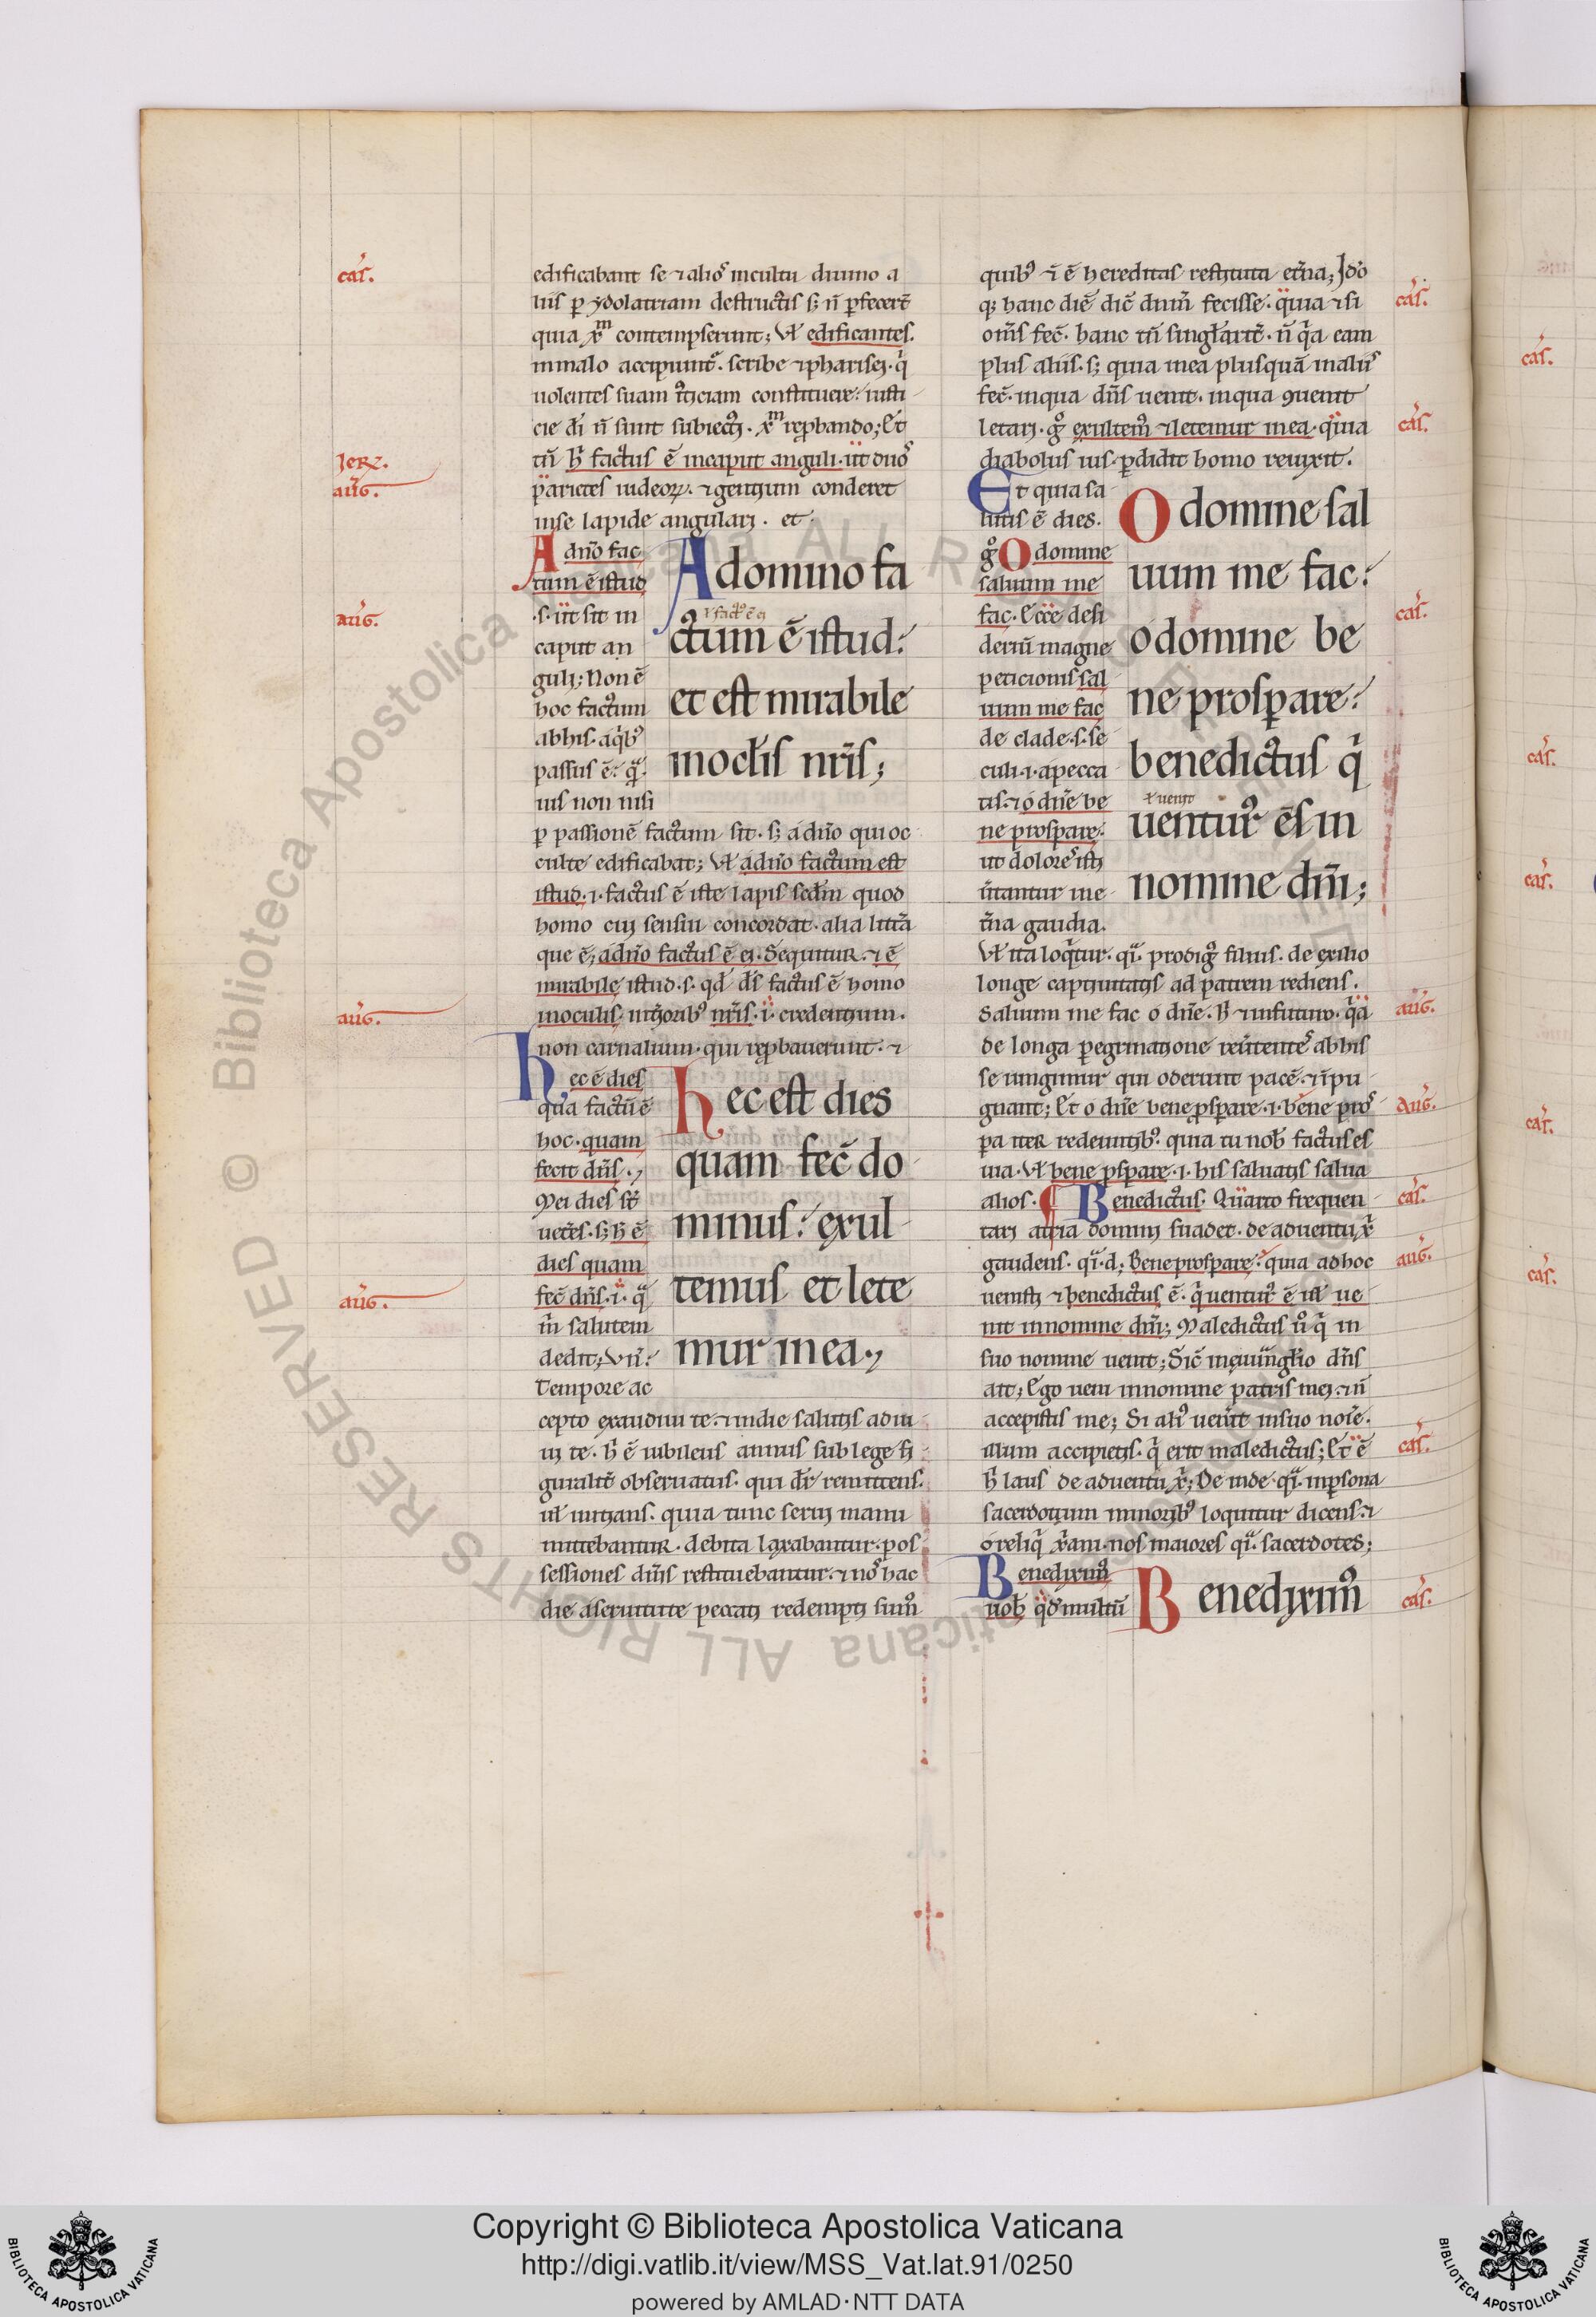 edificabant se ⁊ alios̉ in cultu diuino a
quia xp̄m contempserunt; Vl̄ edificantes.
in malo accipiunt᷑. scribe ⁊ pharisei. q̇
uolentes suam iusticiam constituere. iusti
cie d̄i n̄ sunt subiecti. xp̄m rep̱bando; Et
tn̄ h̄ factus ē in caput anguli. ut duos̉
parietes iudeoꝝ. ⁊ gentium conderet
in se lapide angulari. et
A dn̄o fac
tum ē istud
.s. ut sit in
caput an
guli; Non ē
hoc factum
ab his. a q̇bꝰ
passus ē.
uis non nisi
A domino fa
ctum ē istud.
et est mirabile
in oc̄lis nr̄is;
ꝑ passionē factum sit. sꝫ a dn̄o qui oc
culte edificabat; Vl̄ a dn̄o factum est
istud. i. factus ē iste lapis secd̄m quod
homo eius sensui concordat. alia litt̄a
que ē; a dn̄o factus ē ei. Sequitur. ⁊ ē
mirabile istud. s. qd̄ d̄s factus ē homo
in oculis. int̄ioribꝰ nr̄is. i. credentium.
non carnalium. qui rep̱bauerunt. ⁊
Hec ē dies
qua factū ē
hoc. quam
fecit dn̄s.
Mei dies st̄
uet̄es. sꝫ h̄ ē
dies quam
fec̄ dn̄s. i. q̄
m̄ salutem
dedit; Vn̄.
Tempore ac
Hec est dies
quam fec̄ do
minus. exul
temus et lete
mur in ea.
cepto exaudiui te. ⁊ in die salutis adiu
ui te. h̄ ē iubileus annus sub lege fi
guralit̄ obseruatus. qui dr̄ remittens.
ul̄ initians. quia tunc serui manu
mittebantur. debita laxabantur. pos
sessiones dn̄is restituebantur. ⁊ nos̉ hac
die a seruitute peccati redempti sumꝰ
quibꝰ ⁊ ē hereditas restituta et̄na; Ido
qꝫ hanc diē dic̄ dn̄m fecisse. quia ⁊ si
om̄s fec̄. hanc tn̄ singl̄arit̄. n̄ q̇a eam
plus aliis. sꝫ quia in ea plusquā in aliis̉
fec̄. in qua dn̄s uenit. in qua ꝯuenit
letari. gͦ exultemꝰ ⁊ letemur in ea. quia
diabolus ius ꝑdidit homo reuixit.
Et quia sa
lutis ē dies.
gͦ O domine
saluum me
fac. Ecce desi
deriū magne
peticionis sal
uum me fac
de clade. s. se
culi. i. a pecca
tis. ⁊ o dn̄e be
ne prosꝑare.
ut dolores̉ isti
ne
t̄na gaudia.
O domine sal
uum me fac.
o domine be
ne prosꝑare.
benedictus q̇
ł uenit
uenturꝰ ēs in
nomine dn̄i;
Vl̄ ita loq̇tur. q̄i. prodigꝰ filius. de exilio
longe captiuitatis ad patrem rediens.
Saluum me fac o dn̄e. h̄ ⁊ in futuro. q̄a
de longa ꝑegrinatione reu̇tentes̉ ab his
se iungimur qui oderunt pacē. ⁊ īpu
gnant; Et o dn̄e bene ꝓsꝑare. i. bene pros̉
pa iter redeuntibꝰ. quia tu nob̄ factus es
uia. Vl̄ bene ꝓsꝑare. i. his saluatis salua
alios. ¶ Benedictus. Quarto frequen
tari atria domini suadet. de aduentu xp̄i
gaudens. q̄i. d; Bene prosꝑare. quia ad hoc
uenisti ⁊ benedictus ē. q̇ uenturꝰ ē ul̄ ue
nit in nomine dn̄i; Maledictus u̇ͦ q̇ in
suo nomine uenit; Sic̄ in euūgl̄io dn̄s
ait; Ego ueni in nomine patris mei. ⁊ n̄
accepistis me; Si aliꝰ uen̄it in suo noīe.
illum accipietis. q̇ erit maledictus; Et ē
h̄ laus de aduentu xp̄i; De inde. q̄i. in ꝑsona
sacerdotum minoribꝰ loquitur dicens. ⁊
o reliq̇ xp̄iani. nos maiores q̄i. sacerdotes;
Benediximꝰ
uob̄ q̇d̄ multū
Benediximꝰ
cas̉.
Jeꝝ.
aug̉.
aug̉.
aug̉.
aug̉.
cas̉.
cas̉.
cas̉.
aug̉.
Aug̉.
cas̉.
aug̉.
cas̉.
cas̉.
cas̉.
cas̉.
cas̉.
cas̉.
cas̉.
© Biblioteca Apostolica Vaticana ALL RIGHTS RESERVED
Copyright © Biblioteca Apostolica Vaticana
http://digi.vatlib.it/view/MSS_Vat.lat.91/0250
powered by AMLAD·NTT DATA
BIBLIOTECA APOSTOLICA VATICANA
BIBLIOTECA APOSTOLICA VATICANA